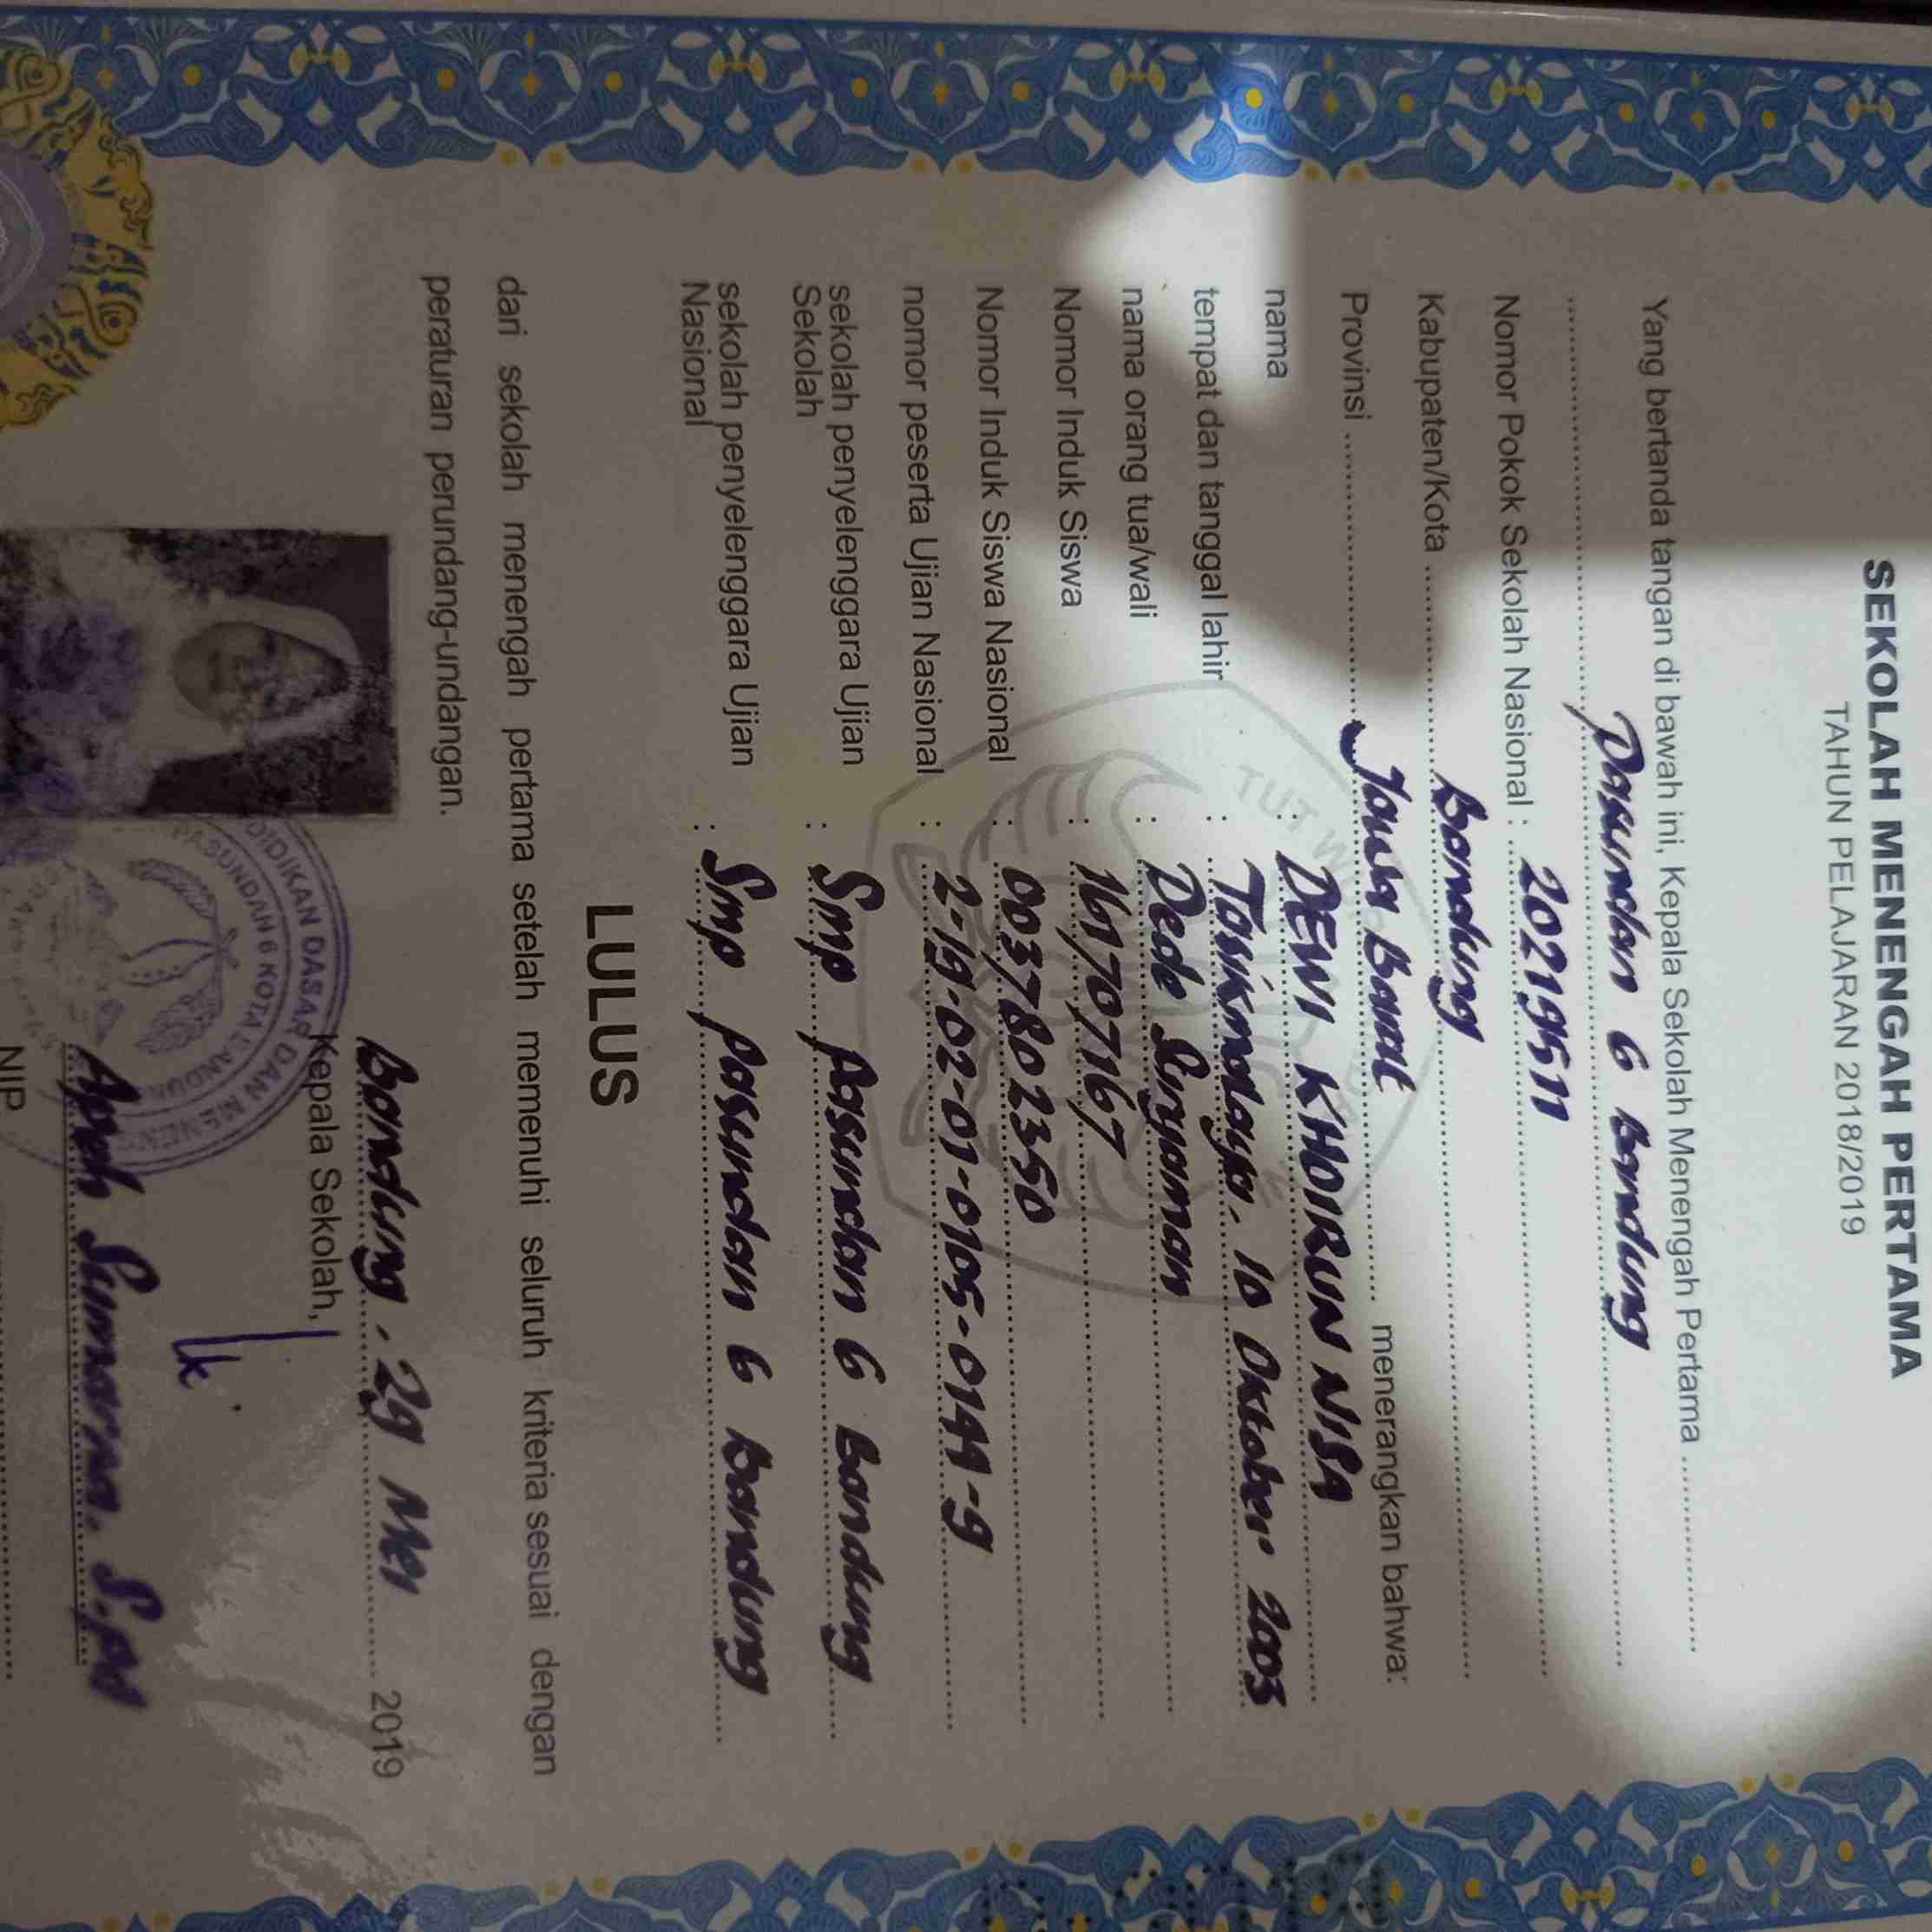 SEKOLAH MENENGAH PERTAMA
TAHUN PELAJARAN 2018/2019
Yang bertanda tangan di bawah ini, Kepala Sekolah Menengah Pertama ..........
.......... Pasundan 6 Bandung ..........
Nomor Pokok Sekolah Nasional : 20219511
Kabupaten/Kota .......... Bandung ..........
Provinsi .......... Jawa Barat .......... menerangkan bahwa:
nama : DEWI KHOIRUN NISA
tempat dan tanggal lahir : Tasikmalaya. 10 Oktober 2003
nama orang tua/wali : Dede Suryaman
Nomor Induk Siswa : 161707167
Nomor Induk Siswa Nasional : 0037802350
nomor peserta Ujian Nasional : 2-19-02-01-0105-0144-9
sekolah penyelenggara Ujian : Smp Pasundan 6 Bandung
Sekolah
sekolah penyelenggara Ujian : Smp Pasundan 6 Bandung
Nasional
LULUS
dari sekolah menengah pertama setelah memenuhi seluruh kriteria sesuai dengan
peraturan perundang-undangan.
Bandung, 29 Mei 2019
Kepala Sekolah,
Sumarna. S.Pd
NIP
TUT
DIDIKAN DASAR DAN MENEN
PASUNDAN 6 KOTA BANDUNG